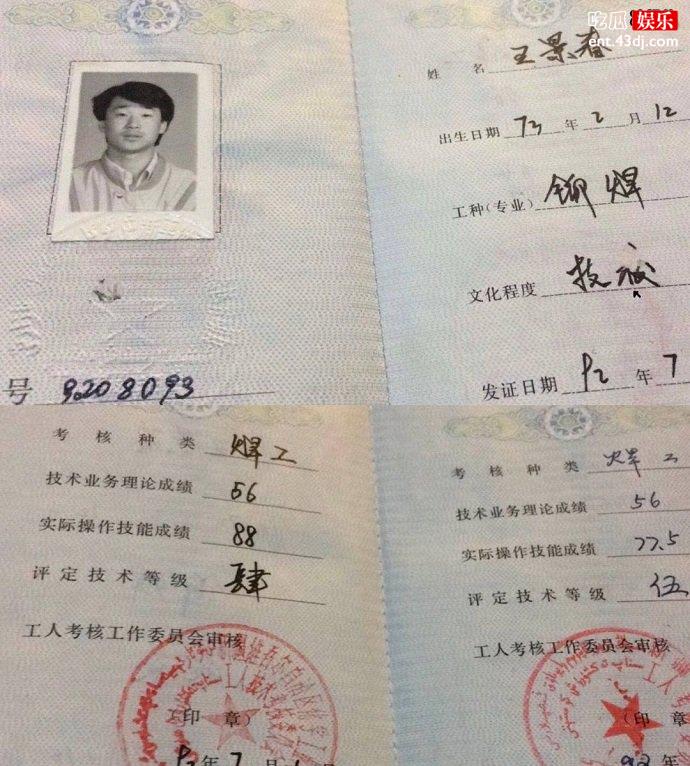 吃瓜 娱乐
ent.43dj.com
姓 名 王景春
出生日期 73 年 2 月 12
工种(专业) 铆焊
文化程度 技校
发证日期 92 年 7
号 9208093
考 核 种 类 焊工
技术业务理论成绩 56
实际操作技能成绩 88
评定技术等级 肆
工人考核工作委员会审核
维吾尔自治区
工人技术考核委员
(印 章)
92 年 7 月
考 核 种 类 焊工
技术业务理论成绩 56
实际操作技能成绩 77.5
评定技术等级 伍
工人考核工作委员会审核
(印 章
92 年